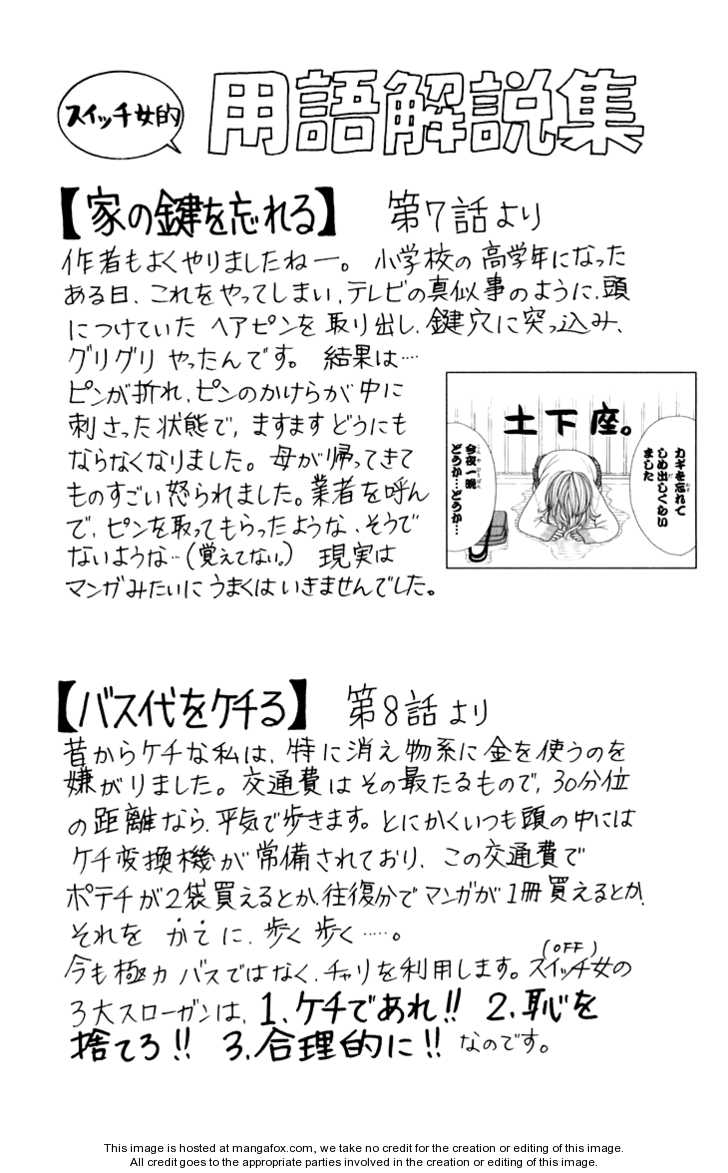 スイッチ女的
用語解説集
【家の鍵を忘れる】 第7話より
作者もよくやりましたねー。 小学校の高学年になった
ある日、これをやってしまい、テレビの真似事のように、頭
につけていた ヘアピンを 取り出し、鍵穴に突っ込み、
グリグリ やったんです。 結果は‥‥
ピンが折れ、ピンのかけらが中に
刺さった状態で、ますますどうにも
ならなくなりました。母が帰ってきて
ものすごい怒られました。業者を呼ん
で、ピンを取ってもらったような、そうで
ないような‥(覚えてない。) 現実は
マンガみたいにうまくはいきませんでした。
カギを忘れて
しめ出しくらい
ました
土下座。
今夜一晩
どうか…どうか…
【バス代をケチる】 第8話より
昔からケチな私は、特に消え物系に金を使うのを
嫌がりました。交通費はその最たるもので、30分位
の距離なら、平気で歩きます。とにかくいつも頭の中には
ケチ変換機が常備されており、この交通費で
ポテチが2袋買えるとか、往復分でマンガが1冊買えるとか、
それを かてに、歩く歩く‥‥‥。
今も極力バスではなく、チャリを利用します。スイッチ女(OFF)の
3大スローガンは、1、ケチであれ!! 2、恥を
捨てろ!! 3、合理的に!! なのです。
This image is hosted at mangafox.com, we take no credit for the creation or editing of this image.
All credit goes to the appropriate parties involved in the creation or editing of this image.